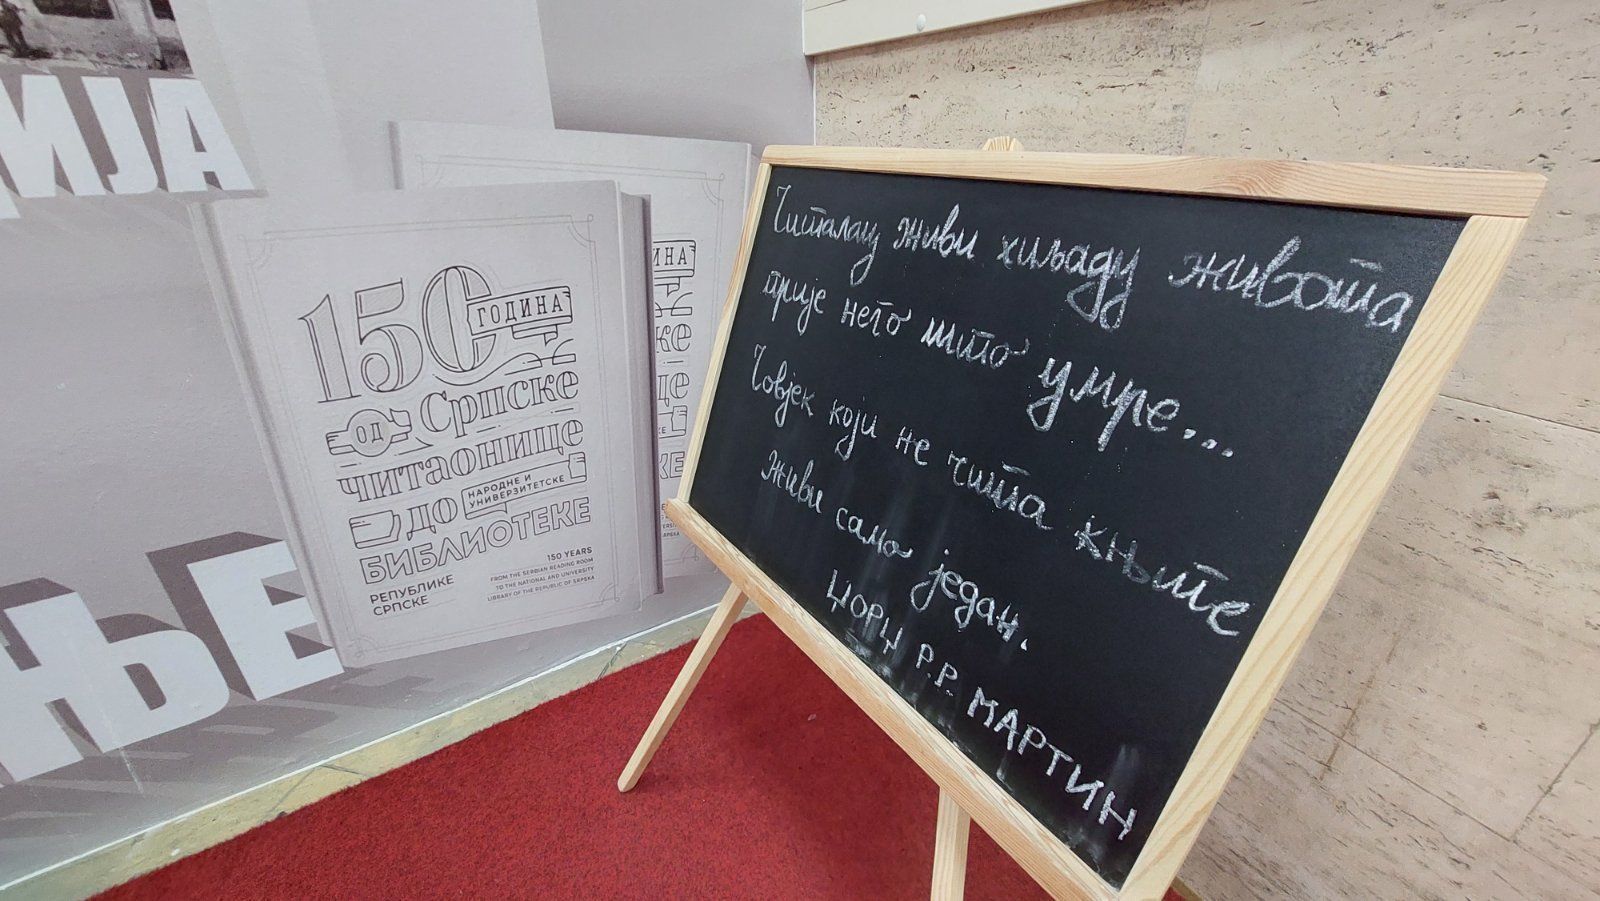 ИЈА
ЊЕ
150
ГОДИНА
ОД СРПСКЕ
ЧИТАОНИЦЕ
ДО НАРОДНЕ И
УНИВЕРЗИТЕТСКЕ
БИБЛИОТЕКЕ
РЕПУБЛИКЕ
СРПСКЕ
150 YEARS
FROM THE SERBIAN READING ROOM
TO THE NATIONAL AND UNIVERSITY
LIBRARY OF THE REPUBLIC OF SRPSKA
Читалац живи хиљаду живота
прије него што умре...
Човјек који не чита књиге
живи само један.
ЏОРЏ Р.Р. МАРТИН